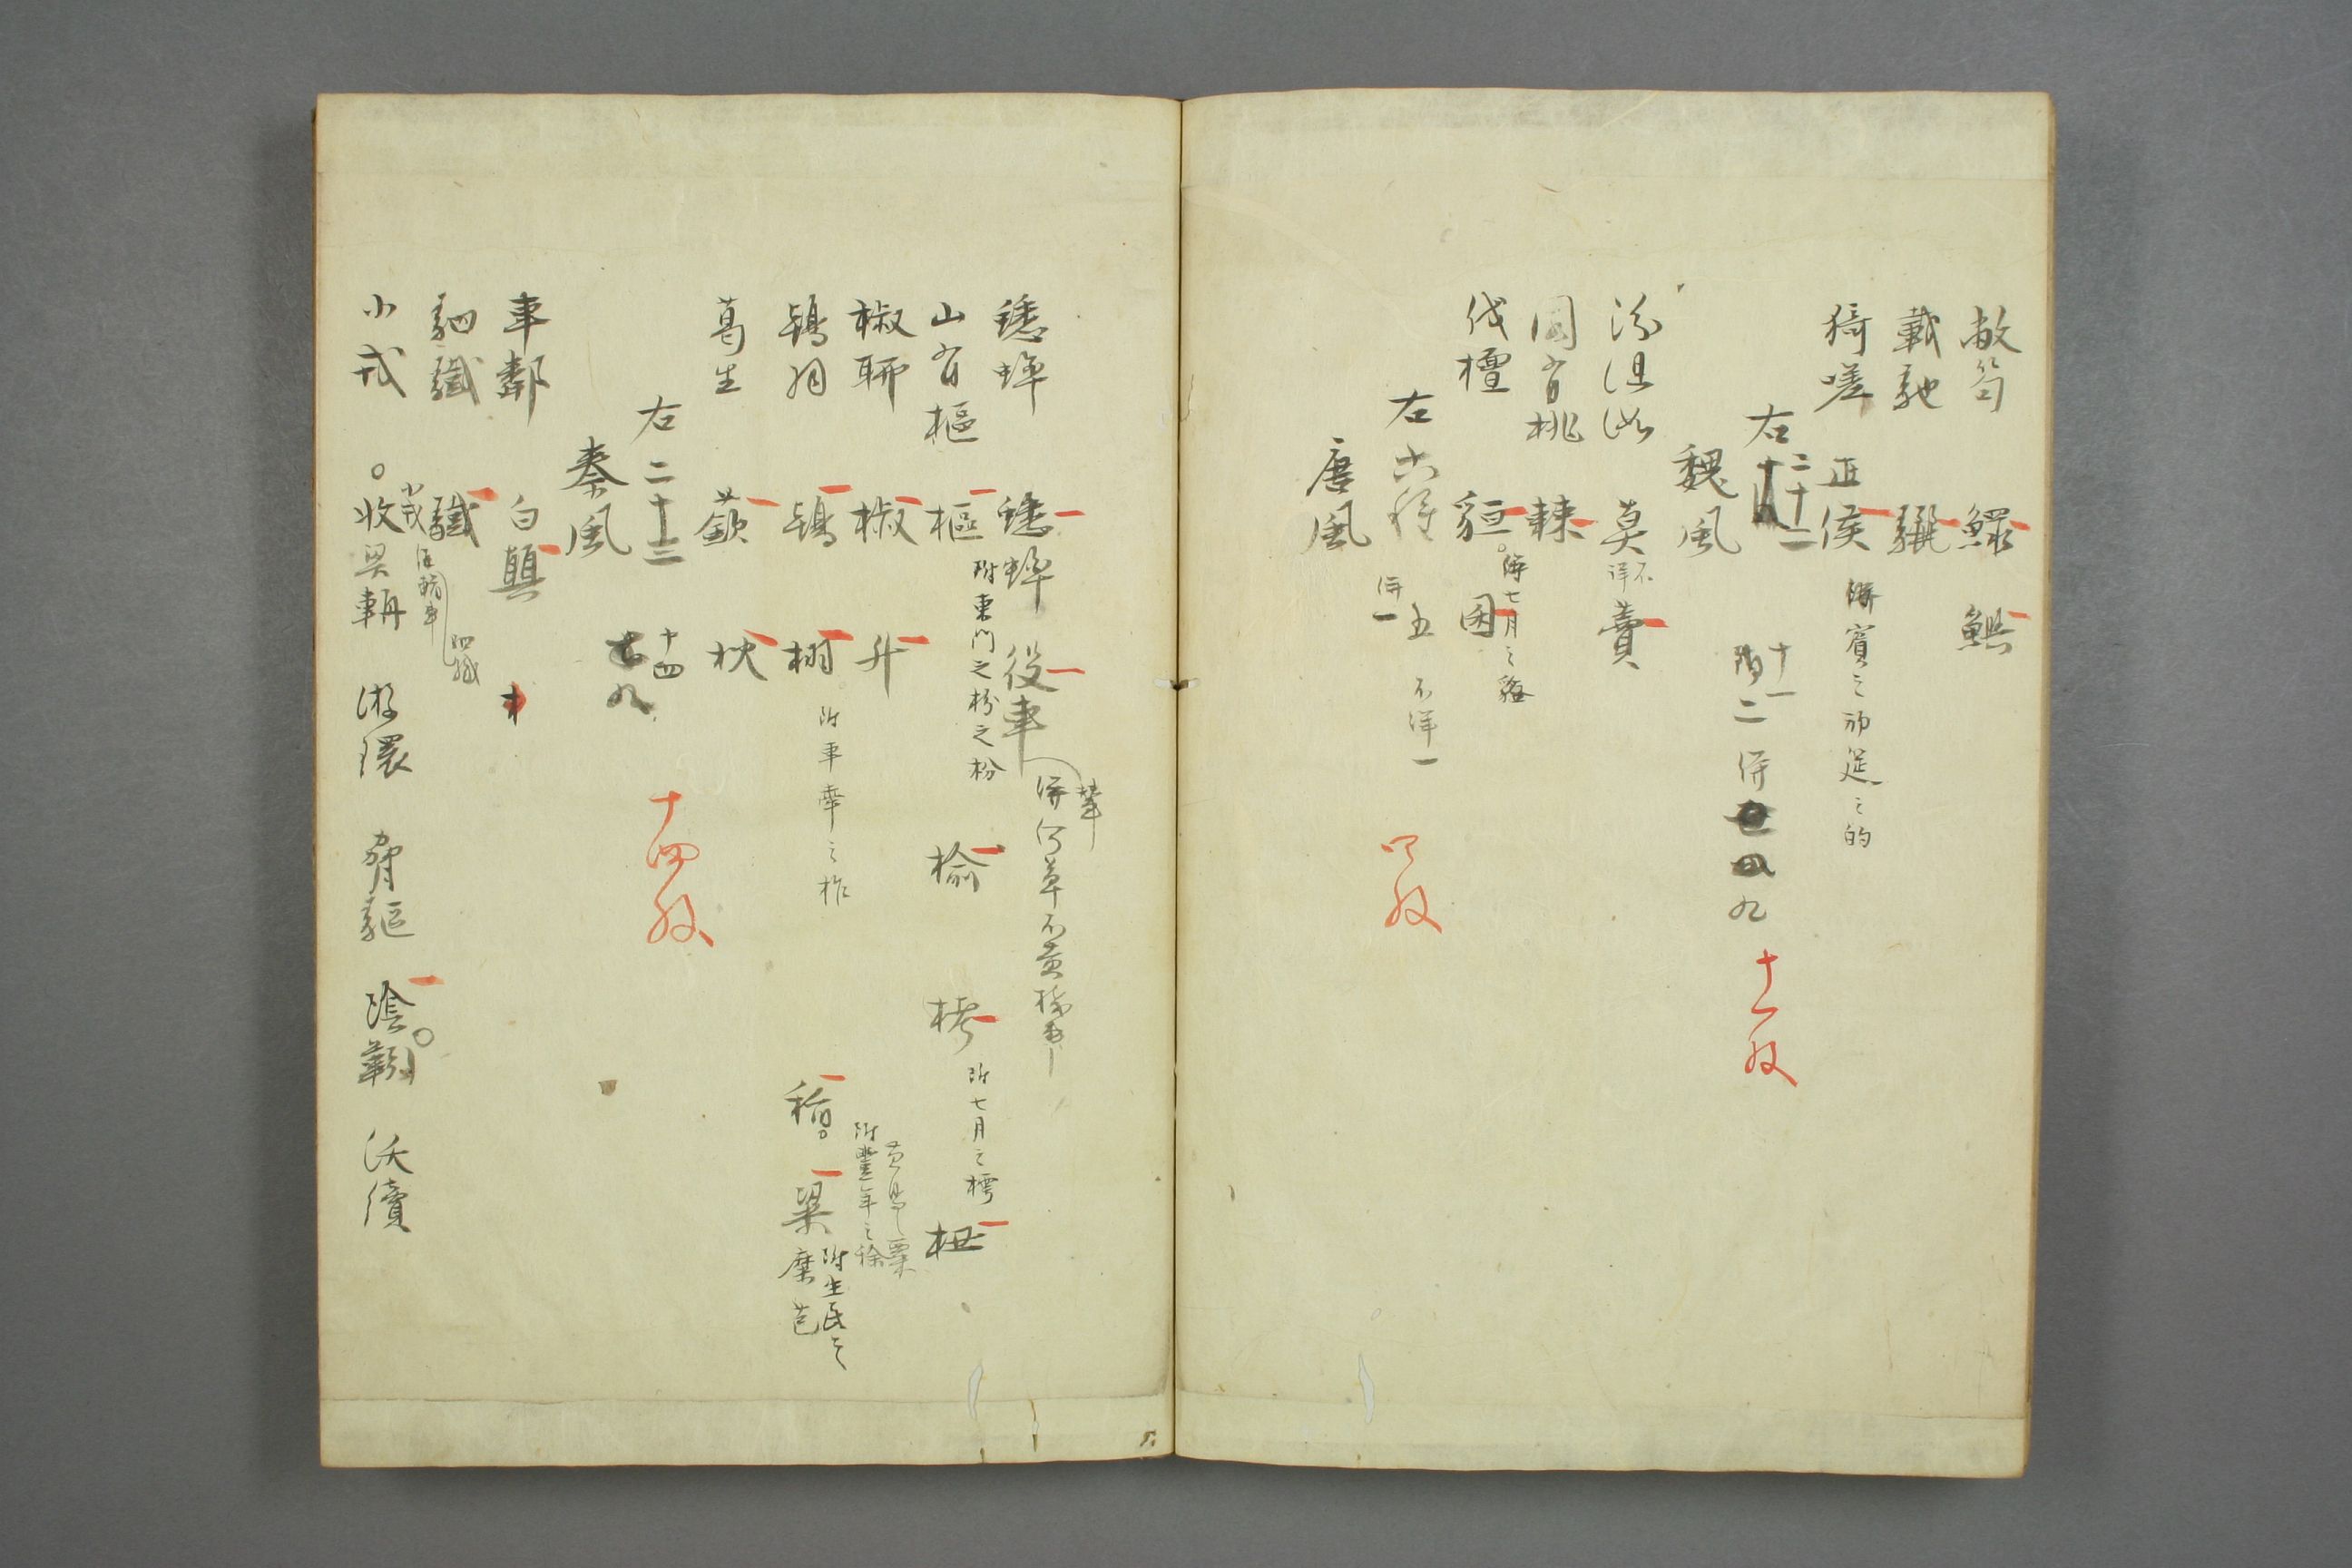 敝笱 鰥 鱮
載馳 驪
猗嗟 正侯 併賓之初筵之的
右二十二 十一 附二 併 九 十一
魏風
汾沮洳 莫 不詳 藚
園有桃 棘
伐檀 貆 併七月之貉 囷
右六 五 併一 不詳一
唐風
蟋蟀 蟋蟀 役車 併何草不黄棧車
山有樞 樞 附東門之枌之枌 榆 栲 附七月之樗 杻
椒聊 椒 升
鴇羽 鴇 栩 附車舝之柞 稻 附豐年之稌 粱 附生民之糜芑
葛生 蘞 枕
右二十三 十四 九 十四
秦風
車鄰 白顛
駟驖 驖
小戎 收 梁輈 游環 脅驅 陰靷 沃續